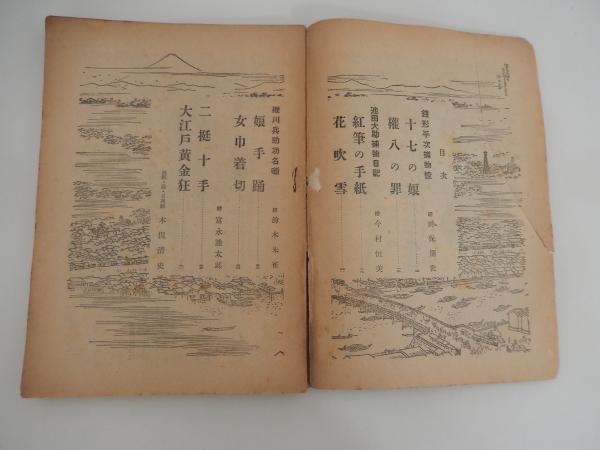 目次
銭形平次捕物控
十七の娘
権八の罪
池田大助捕物日記
紅筆の手紙
花吹雪
絵 今村恒美
細川兵助功名噺
娘手踊
女巾着切
絵 鈴木朱雀
二挺十手
絵 富永謙太郎
大江戸黄金狂
木俣清史